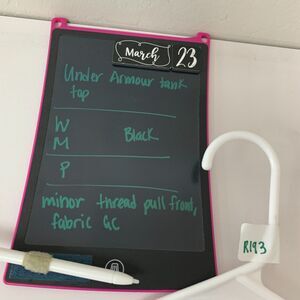 March 23
Under Armour tank
top
W
M Black
P
minor thread pull front,
fabric GC
R193